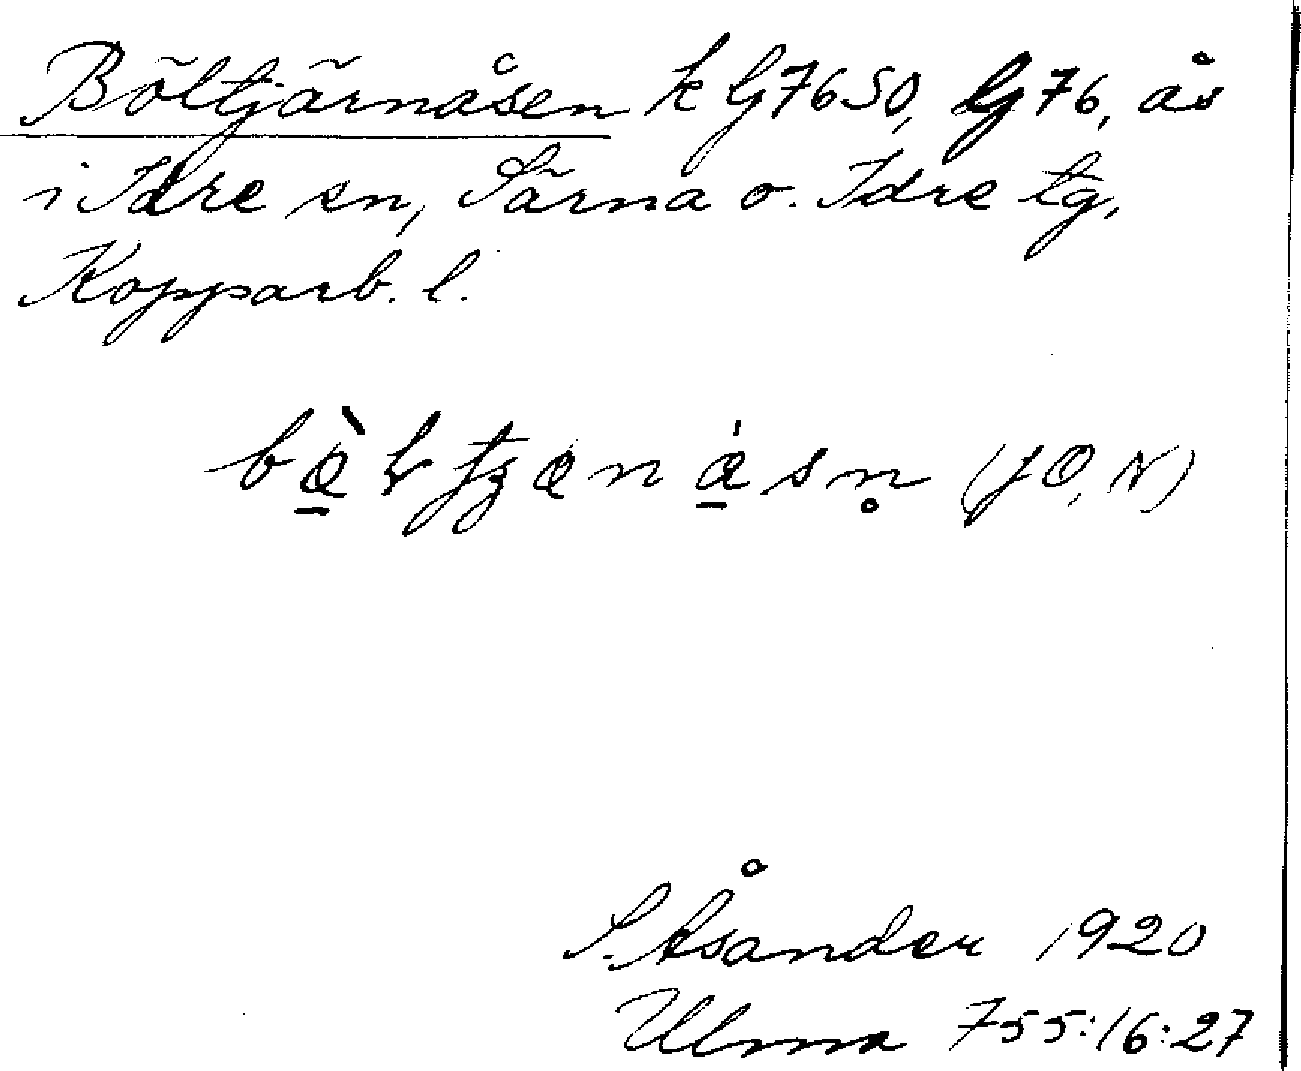 Böltjärnåsen k G7650, G76, ås
i Idre sn, Särna o. Idre tg,
Kopparb. l.
(JO, N)
S. Åsander 1920
Ulma 755:16:27